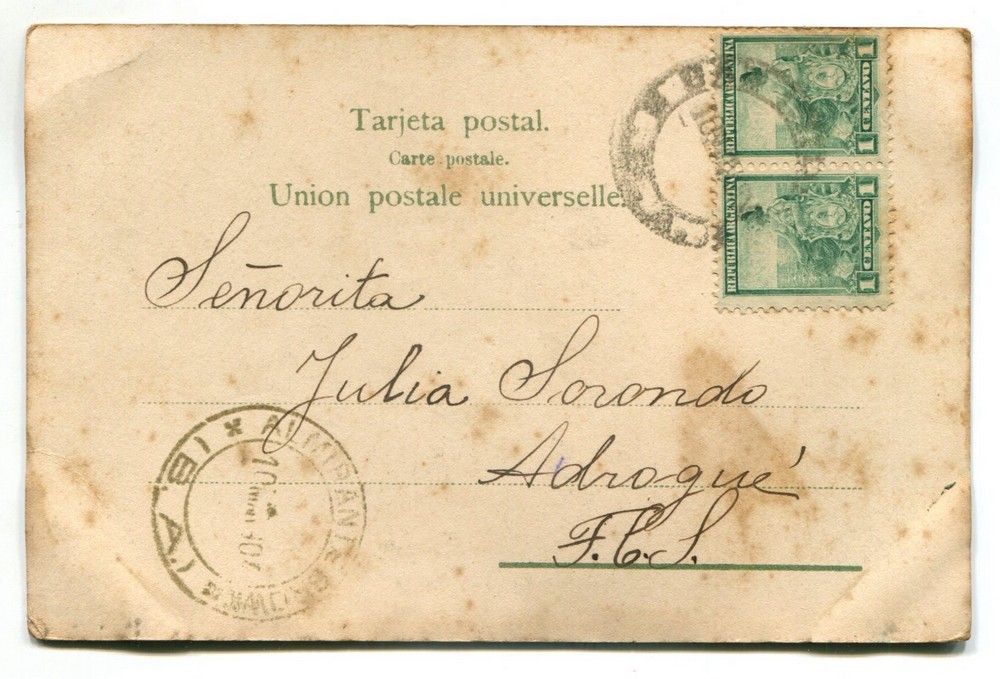 Tarjeta postal.
Carte postale.
Union postale universelle.
1 CENTAVO 1
REPUBLICA ARGENTINA
1 CENTAVO 1
REPUBLICA ARGENTINA
Señorita
Julia Sorondo
Adrogué
F.C.S.
ALMIRANTE BROWN
(B.A.)